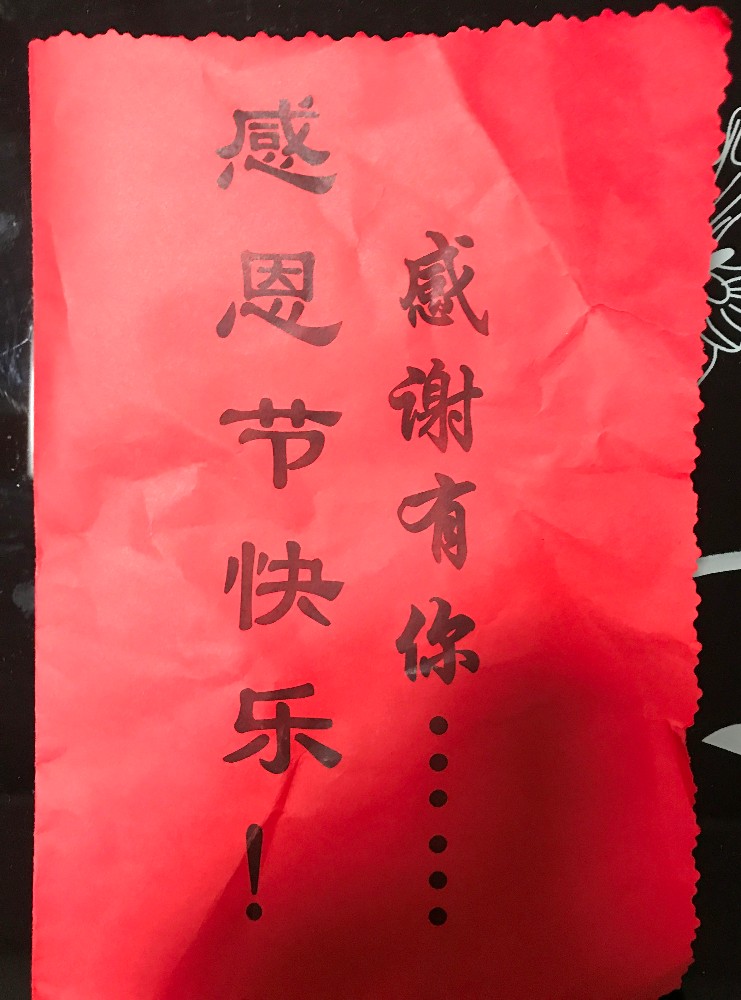 感恩节快乐！
感谢有你……